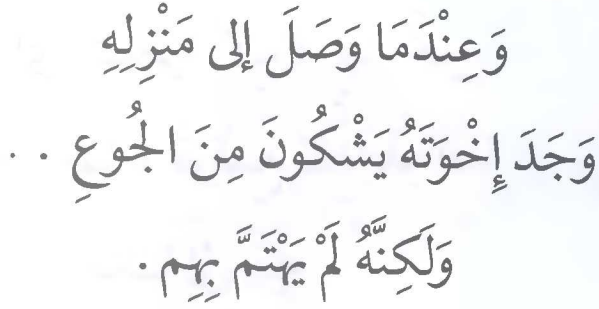 وَعِنْدَمَا وَصَلَ إلى مَنْزِلِهِ
وَجَدَ إِخْوَتَهُ يَشْكُونَ مِنَ الجُوعِ . .
وَلَكِنَّهُ لَمْ يَهْتَمَّ بِهِم .